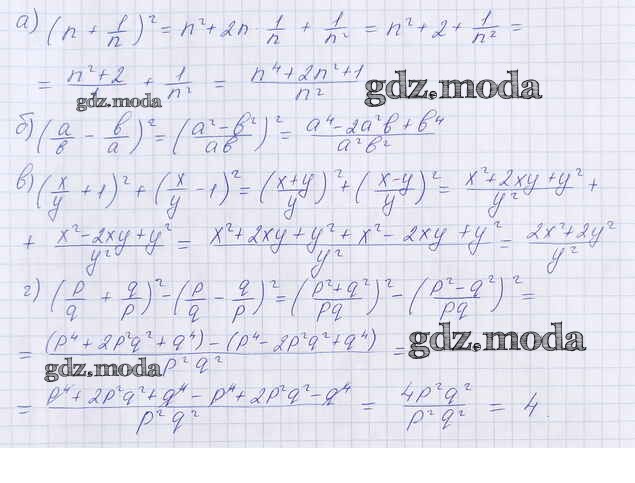 а) (n + 1/n)² = n² + 2n · 1/n + 1/n² = n² + 2 + 1/n² =
= (n² + 2)/1 + 1/n² = (n⁴ + 2n² + 1)/n²
gdz.moda gdz.moda
б) (a/b − b/a)² = ((a² − b²)/ab)² = (a⁴ − 2a²b + b⁴)/a²b²
в) (x/y + 1)² + (x/y − 1)² = ((x+y)/y)² + ((x−y)/y)² = (x² + 2xy + y²)/y² +
+ (x² − 2xy + y²)/y² = (x² + 2xy + y² + x² − 2xy + y²)/y² = (2x² + 2y²)/y²
г) (p/q + q/p)² − (p/q − q/p)² = ((p² + q²)/pq)² − ((p² − q²)/pq)² =
= ((p⁴ + 2p²q² + q⁴) − (p⁴ − 2p²q² + q⁴))/p²q² =
gdz.moda gdz.moda
= (p⁴ + 2p²q² + q⁴ − p⁴ + 2p²q² − q⁴)/p²q² = 4p²q²/p²q² = 4.